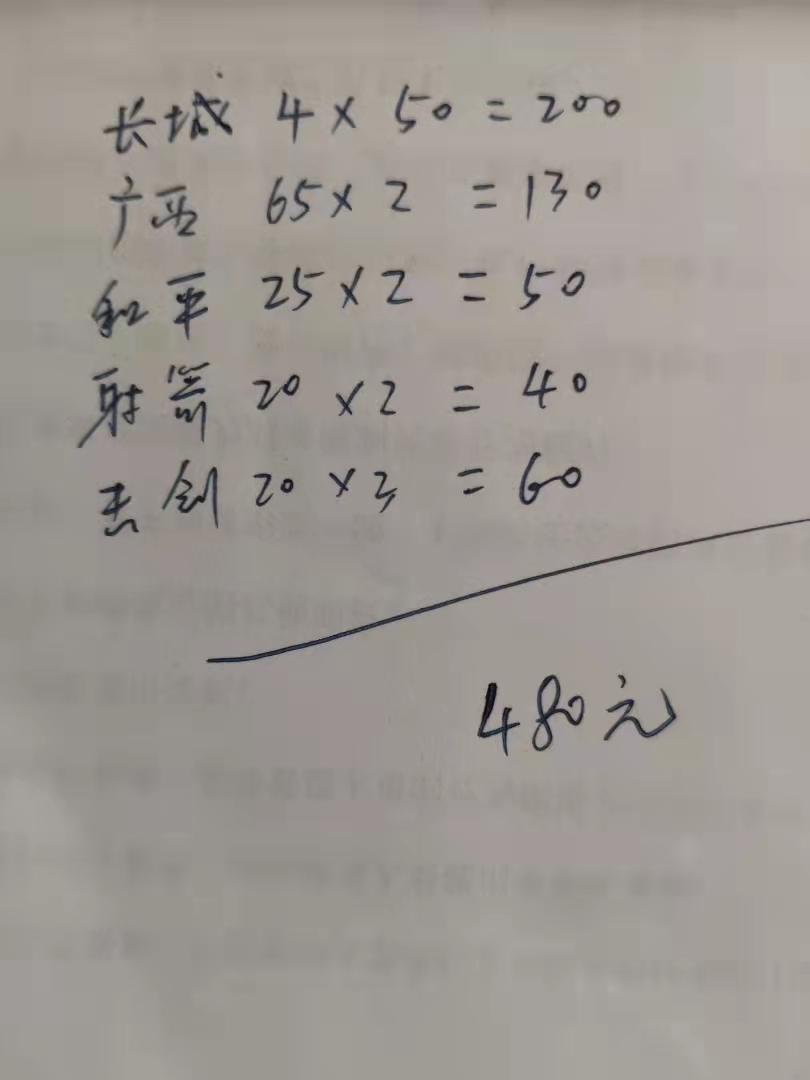 长城 4 × 50 = 200
广西 65 × 2 = 130
和平 25 × 2 = 50
射箭 20 × 2 = 40
击剑 20 × 3 = 60
480元